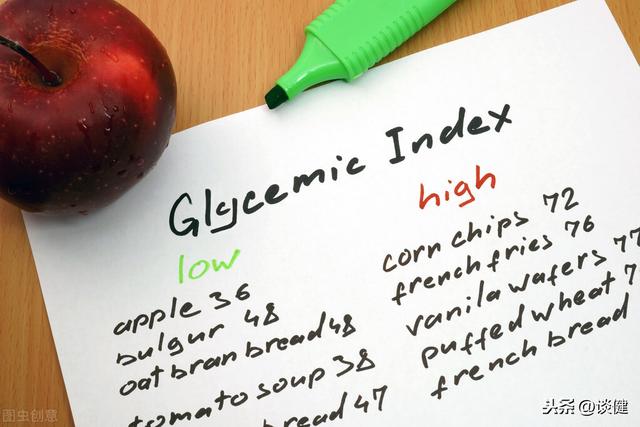 Glycemic Index
low
apple 36
bulgur 48
oat bran bread 48
tomato soup 38
bread 47
high
corn chips 72
french fries 76
vanila wafers 77
puffed wheat 7
french bread
图虫创意
头条 @谈健